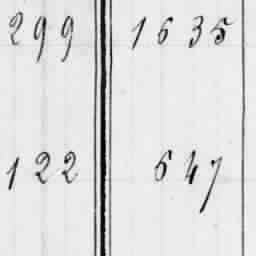 299 1635
122 647